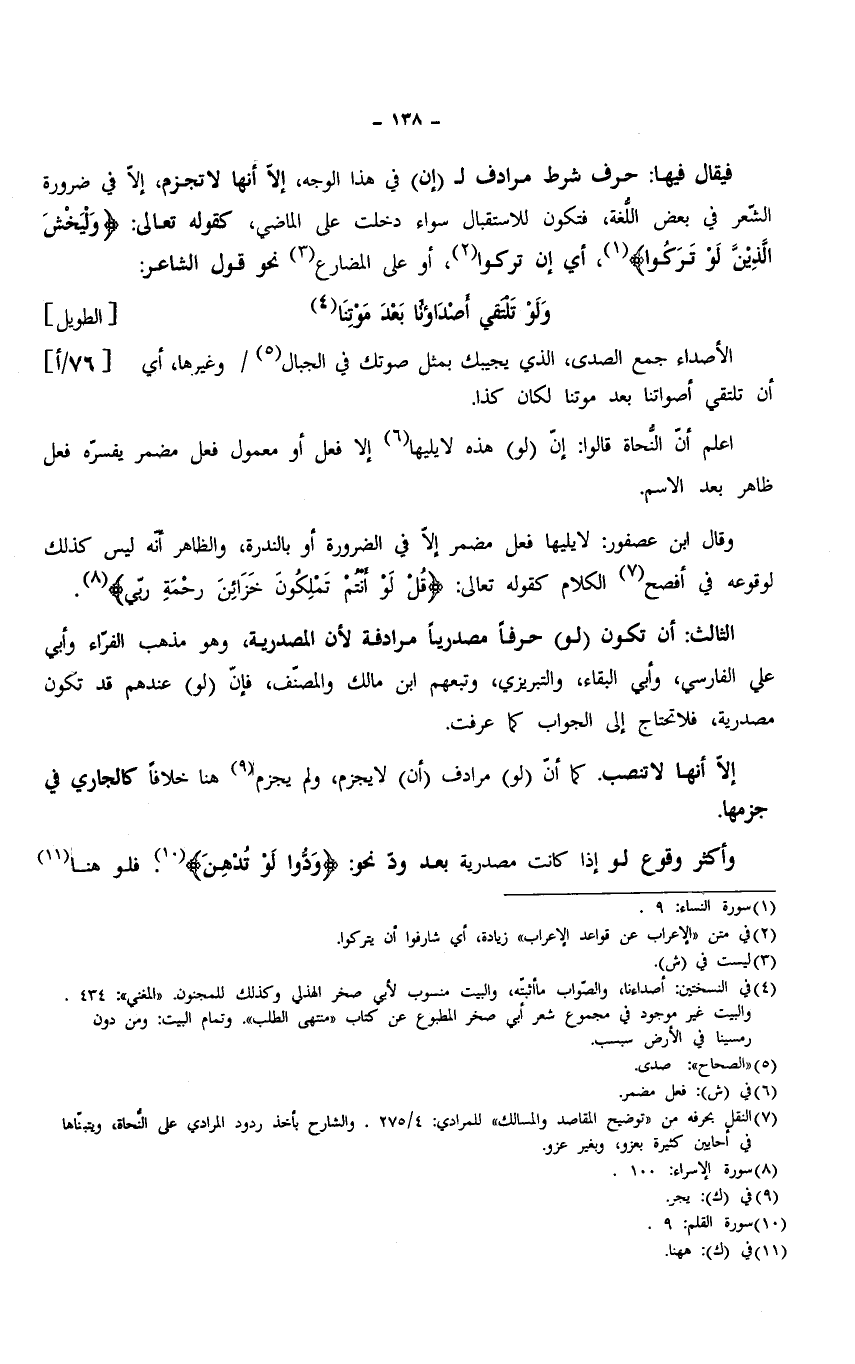 - ١٣٨ -
فيقال فيها: حرف شرط مرادف لـ (إن) في هذا الوجه، إلاّ أنها لاتجزم، إلاّ في ضرورة
الشّعر في بعض اللُّغة، فتكون للاستقبال سواء دخلت على الماضي، كقوله تعالى: ﴿وَلْيَخْشَ
الَّذِيْنَّ لَوْ تَرَكُوا﴾(١)، أي إن تركوا(٢)، أو على المضارع(٣) نحو قول الشاعر:
وَلَوْ تَلْتَقي أَصْدَاؤنَا بَعْدَ مَوْتِنَا(٤) [الطويل]
الأصداء جمع الصدى، الذي يجيبك بمثل صوتك في الجبال(٥) / وغيرها، أي [٧٦/أ]
أن تلتقي أصواتنا بعد موتنا لكان كذا.
اعلم أنّ النُّحاة قالوا: إنّ (لو) هذه لايليها(٦) إلا فعل أو معمول فعل مضمر يفسرّه فعل
ظاهر بعد الاسم.
وقال ابن عصفور: لايليها فعل مضمر إلاّ في الضرورة أو بالندرة، والظاهر أنّه ليس كذلك
لوقوعه في أفصح(٧) الكلام كقوله تعالى: ﴿قُلْ لَوْ أَنْتُمْ تَمْلِكُونَ خَزَائِنَ رحْمَةِ ربّي﴾(٨).
الثالث: أن تكون (لو) حرفاً مصدرياً مرادفة لأن المصدرية، وهو مذهب الفرّاء وأبي
علي الفارسي، وأبي البقاء، والتبريزي، وتبعهم ابن مالك والمصنّف، فإنّ (لو) عندهم قد تكون
مصدرية، فلاتحتاج إلى الجواب كما عرفت.
إلاّ أنها لاتنصب. كما أنّ (لو) مرادف (أن) لايجزم، ولم يجزم(٩) هنا خلافاً كالجاري في
جزمها.
وأكثر وقوع لو إذا كانت مصدرية بعد ودّ نحو: ﴿وَدُّوا لَوْ تُدْهِنَ﴾(١٠). فلو هنا(١١)
(١) سورة النساء: ٩ .
(٢) في متن «الإعراب عن قواعد الإعراب» زيادة، أي شارفوا أن يتركوا.
(٣) ليست في (ش).
(٤) في النسختين: أصداءنا، والصّواب ماأثبتّه، والبيت منسوب لأبي صخر الهذلي وكذلك للمجنون. «المغني»: ٤٣٤ .
والبيت غير موجود في مجموع شعر أبي صخر المطبوع عن كتاب «منتهى الطلب». وتمام البيت: ومن دون
رمسينا في الأرض سبسب.
(٥) «الصحاح»: صدى.
(٦) في (ش): فعل مضمر.
(٧) النقل بحرفه من «توضيح المقاصد والمسالك» للمرادي: ٢٧٥/٤ . والشارح يأخذ ردود المرادي على النُّحاة، ويتبنّاها
في أحايين كثيرة بعزو، وبغير عزو.
(٨) سورة الإسراء: ١٠٠ .
(٩) في (ك): يجر.
(١٠) سورة القلم: ٩ .
(١١) في (ك): ههنا.